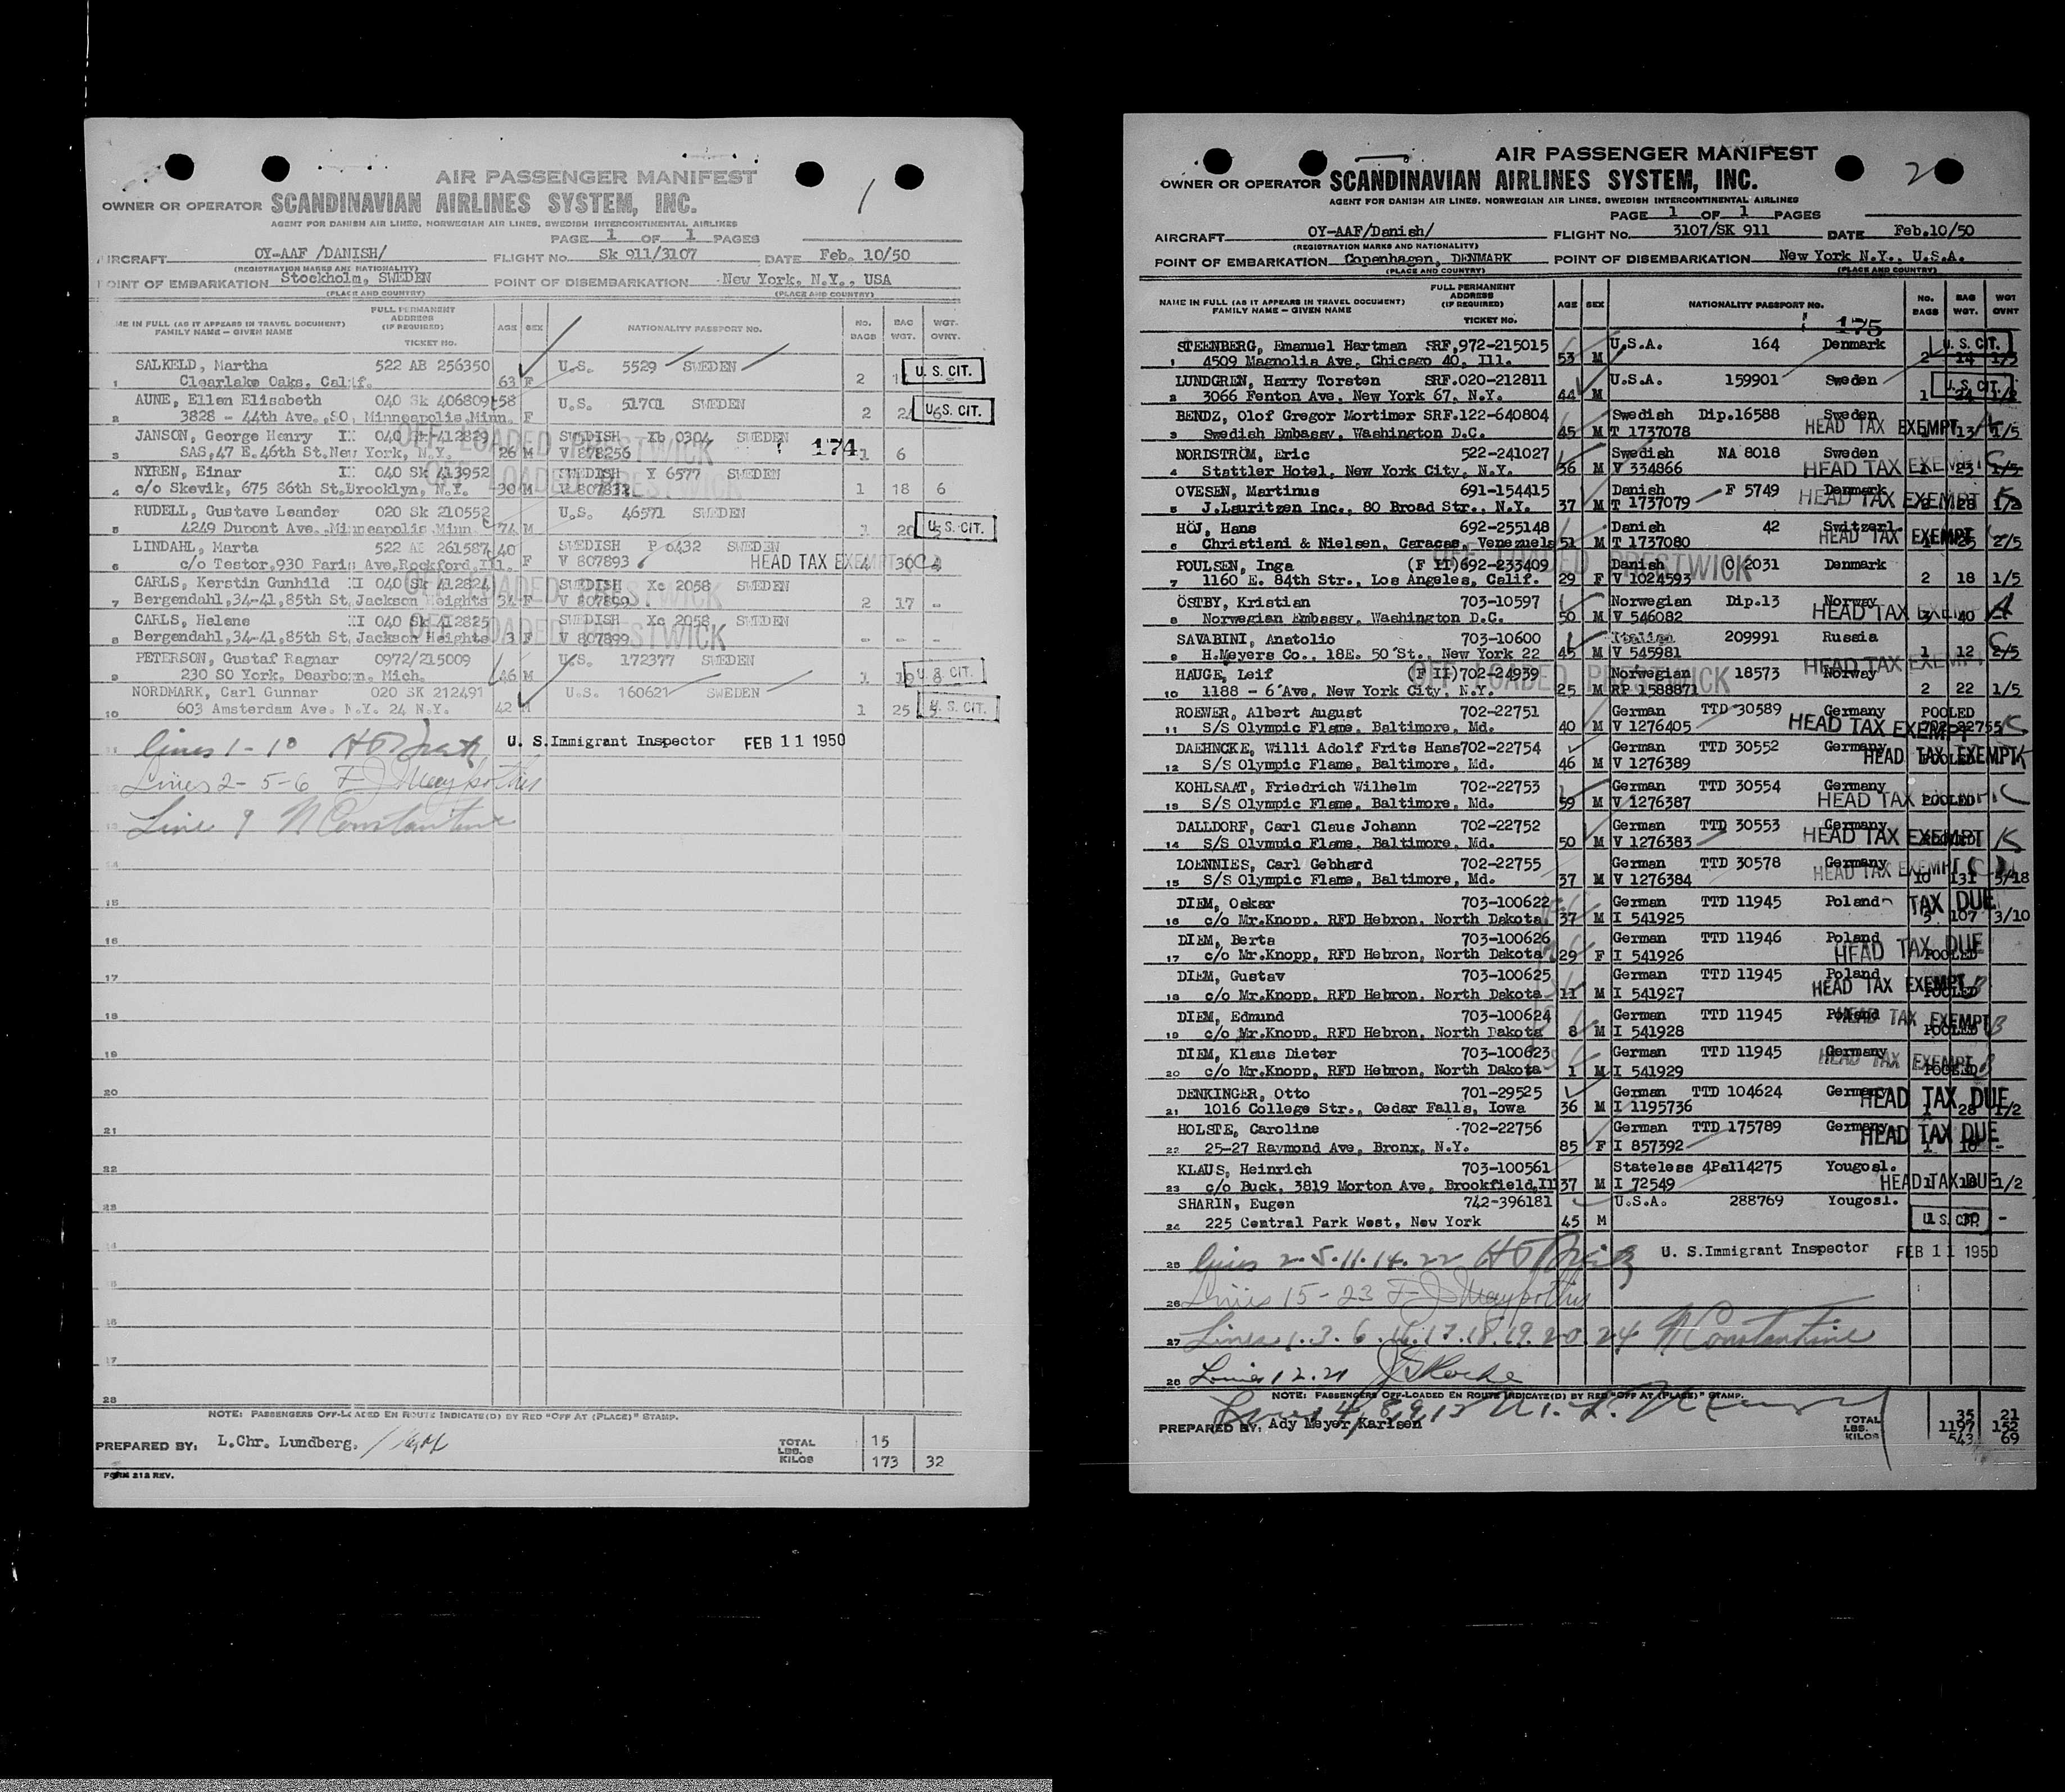 1
AIR PASSENGER MANIFEST
OWNER OR OPERATOR SCANDINAVIAN AIRLINES SYSTEM, INC.
AGENT FOR DANISH AIR LINES, NORWEGIAN AIR LINES, SWEDISH INTERCONTINENTAL AIRLINES
PAGE 1 OF 1 PAGES
AIRCRAFT OY-AAF /DANISH/ FLIGHT NO. Sk 911/3107 DATE Feb. 10/50
(REGISTRATION MARKS AND NATIONALITY)
POINT OF EMBARKATION Stockholm, SWEDEN POINT OF DISEMBARKATION New York, N.Y., USA
(PLACE AND COUNTRY) (PLACE AND COUNTRY)
NAME IN FULL (AS IT APPEARS IN TRAVEL DOCUMENT) FAMILY NAME - GIVEN NAME FULL PERMANENT ADDRESS (IF REQUIRED) TICKET NO. AGE SEX NATIONALITY PASSPORT NO. NO. BAGS BAG WGT. WGT. OVNT.
SALKELD, Martha 522 AB 256350 U.S. 5529 SWEDEN U.S. CIT.
1 Clearlake Oaks, Calif. 63 F 2
AUNE, Ellen Elisabeth 040 Sk 406809 58 U.S. 51701 SWEDEN U.S. CIT.
2 3828 - 44th Ave.,SO, Minneapolis,Minn. F 2 24 6
JANSON, George Henry II 040 412829 SWEDISH Xb 0304 SWEDEN 174
3 SAS,47 E.46th St.New York, N.Y. 26 M V 878256 1 6
OFF LOADED PRESTWICK
NYREN, Einar II 040 Sk 413952 SWEDISH Y 6577 SWEDEN
4 c/o Skevik, 675 86th St,Brooklyn, N.Y. 30 M 1 18 6
OFF LOADED PRESTWICK
RUDELL, Gustave Leander 020 Sk 210552 U.S. 46571 SWEDEN U.S. CIT.
5 4249 Dupont Ave. Minneapolis Minn 74 M 1 20 5
LINDAHL, Marta 522 AB 261587 40 SWEDISH P 6432 SWEDEN
6 c/o Testor,930 Paris Ave,Rockford,Ill. F V 807893 HEAD TAX EXEMPT 4 30
CARLS, Kerstin Gunhild II 040 Sk 412824 SWEDISH Xc 2058 SWEDEN
7 Bergendahl,34-41,85th St,Jackson Heights 34 F V 807899 2 17 -
OFF LOADED PRESTWICK
CARLS, Helene II 040 Sk 412825 SWEDISH Xc 2058 SWEDEN
8 Bergendahl,34-41,85th St,Jackson Heights 3 F V 807899 - - -
OFF LOADED PRESTWICK
PETERSON, Gustaf Ragnar 0972/215009 U.S. 172377 SWEDEN U.S. CIT.
9 230 SO York, Dearborn, Mich. 46 M 1 19 8
NORDMARK, Carl Gunnar 020 SK 212491 U.S. 160621 SWEDEN U.S. CIT.
10 603 Amsterdam Ave. N.Y. 24 N.Y. 42 M 1 25 5
11 lines 1-10 U. S. Immigrant Inspector FEB 11 1950
12 Lines 2- 5-6
13 Line 9 N Constantine
14
15
16
17
18
19
20
21
22
23
14
15
16
17
28
NOTE: PASSENGERS OFF-LOADED EN ROUTE INDICATE(D) BY RED "OFF AT (PLACE)" STAMP.
PREPARED BY: L.Chr. Lundberg. TOTAL LBS. KILOS 15 173 32
FORM 212 REV.
2
AIR PASSENGER MANIFEST
OWNER OR OPERATOR SCANDINAVIAN AIRLINES SYSTEM, INC.
AGENT FOR DANISH AIR LINES, NORWEGIAN AIR LINES, SWEDISH INTERCONTINENTAL AIRLINES
PAGE 1 OF 1 PAGES
AIRCRAFT OY-AAF/Danish/ FLIGHT NO. 3107/SK 911 DATE Feb.10/50
(REGISTRATION MARKS AND NATIONALITY)
POINT OF EMBARKATION Copenhagen, DENMARK POINT OF DISEMBARKATION New York N.Y., U.S.A.
(PLACE AND COUNTRY) (PLACE AND COUNTRY)
NAME IN FULL (AS IT APPEARS IN TRAVEL DOCUMENT) FAMILY NAME - GIVEN NAME FULL PERMANENT ADDRESS (IF REQUIRED) TICKET NO. AGE SEX NATIONALITY PASSPORT NO. NO. BAGS BAG WGT. WGT OVNT
175
STEENBERG, Emanuel Hartman SRF,972-215015 U.S.A. 164 Denmark U.S. CIT.
1 4509 Magnolia Ave, Chicago 40, Ill. 53 M 2 14 1/5
LUNDGREN, Harry Torsten SRF.020-212811 U.S.A. 159901 Sweden U.S. CIT.
2 3066 Fenton Ave, New York 67, N.Y. 44 M 1 24 1/2
BENDZ, Olof Gregor Mortimer SRF.122-640804 Swedish Dip.16588 Sweden
3 Swedish Embassy, Washington D.C. 45 M T 1737078 HEAD TAX EXEMPT 13 1/5
NORDSTRÖM, Eric 522-241027 Swedish NA 8018 Sweden
4 Stattler Hotel, New York City, N.Y. 36 M V 334866 HEAD TAX EXEMPT 1 23 1/5
OVESEN, Martinus 691-154415 Danish F 5749 Denmark
5 J.Lauritzen Inc., 80 Broad Str., N.Y. 37 M T 1737079 HEAD TAX EXEMPT 28 1/2
HÖJ, Hans 692-255148 Danish 42 Switzerl.
6 Christiani & Nielsen, Caracas, Venezuela 51 M T 1737080 HEAD TAX EXEMPT 25 2/5
POULSEN, Inga (F II)692-233409 Danish O 2031 Denmark
7 1160 E. 84th Str., Los Angeles, Calif. 29 F V 1024593 2 18 1/5
OFF LOADED PRESTWICK
ÖSTBY, Kristian 703-10597 Norwegian Dip.13 Norway
8 Norwegian Embassy, Washington D.C. 50 M V 546082 HEAD TAX EXEMPT 3 40
SAVABINI, Anatolio 703-10600 Italian 209991 Russia
9 H.Meyers Co., 18E. 50 St., New York 22 45 M V 545981 1 12 2/5
HEAD TAX EXEMPT
HAUGE, Leif (F II)702-24939 Norwegian 18573 Norway
10 1188 - 6 Ave, New York City, N.Y. 25 M RP 1588871 2 22 1/5
OFF LOADED PRESTWICK
ROEWER, Albert August 702-22751 German TTD 30589 Germany POOLED
11 S/S Olympic Flame, Baltimore, Md. 40 M V 1276405 HEAD TAX EXEMPT 702-22755 K
DAEHNCKE, Willi Adolf Frits Hans702-22754 German TTD 30552 Germany
12 S/S Olympic Flame, Baltimore, Md. 46 M V 1276389 HEAD TAX EXEMPT POOLED K
KOHLSAAT, Friedrich Wilhelm 702-22753 German TTD 30554 Germany
13 S/S Olympic Flame, Baltimore, Md. 59 M V 1276387 HEAD TAX EXEMPT POOLED
DALLDORF, Carl Claus Johann 702-22752 German TTD 30553 Germany
14 S/S Olympic Flame, Baltimore, Md. 50 M V 1276383 HEAD TAX EXEMPT K
LOENNIES, Carl Gebhard 702-22755 German TTD 30578 Germany
15 S/S Olympic Flame, Baltimore, Md. 37 M V 1276384 HEAD TAX EXEMPT 10 131 3/18
DIEM, Oskar 703-100622 German TTD 11945 Poland TAX DUE
16 c/o Mr.Knopp, RFD Hebron, North Dakota 37 M I 541925 5 107 3/10
DIEM, Berta 703-100626 German TTD 11946 Poland
17 c/o Mr.Knopp, RFD Hebron, North Dakota 29 F I 541926 HEAD TAX DUE POOLED
DIEM, Gustav 703-100625 German TTD 11945 Poland
18 c/o Mr.Knopp, RFD Hebron, North Dakota 11 M I 541927 HEAD TAX EXEMPT POOLED B
DIEM, Edmund 703-100624 German TTD 11945 Poland
19 c/o Mr.Knopp, RFD Hebron, North Dakota 8 M I 541928 HEAD TAX EXEMPT POOLED B
DIEM, Klaus Dieter 703-100623 German TTD 11945 Germany
20 c/o Mr.Knopp, RFD Hebron, North Dakota 1 M I 541929 HEAD TAX EXEMPT POOLED B
DENKINGER, Otto 701-29525 German TTD 104624 Germany
21 1016 College Str., Cedar Falls, Iowa 36 M I 1195736 HEAD TAX DUE 1 28 1/2
HOLSTE, Caroline 702-22756 German TTD 175789 Germany
22 25-27 Raymond Ave, Bronx, N.Y. 85 F I 857392 HEAD TAX DUE 1 10 -
KLAUS, Heinrich 703-100561 Stateless 4Pal14275 Yougosl.
23 c/o Buck, 3819 Morton Ave, Brookfield,Il 37 M I 72549 HEAD TAX DUE 1/2
SHARIN, Eugen 742-396181 U.S.A. 288769 Yougosl.
24 225 Central Park West, New York 45 M U.S. CIT. -
25 lines 2.5.11.14.22 U. S. Immigrant Inspector FEB 11 1950
26 Lines 15-23
27 Lines 1.3.6.16.17.18.19.20.24 N Constantine
28 Lines 12.21
NOTE: PASSENGERS OFF-LOADED EN ROUTE INDICATE(D) BY RED "OFF AT (PLACE)" STAMP.
PREPARED BY: Ady Meyer Karlsen TOTAL LBS. KILOS 35 21
1197 152
543 69